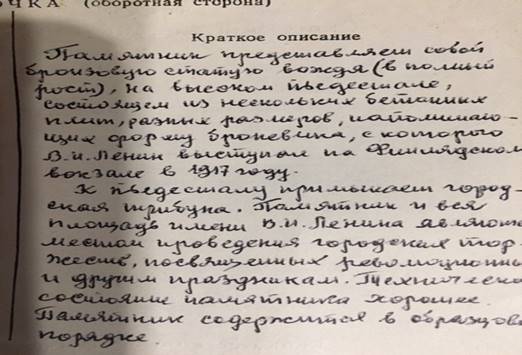 ОЧКА (оборотная сторона)
Краткое описание
Памятник представляет собой
бронзовую статую вождя (в полный
рост), на высоком пьедестале,
состоящем из нескольких бетонных
плит, разных размеров, напоминаю-
щих форму броневика, с которого
В.И. Ленин выступал на Финляндском
вокзале в 1917 году.
К пьедесталу примыкает город-
ская трибуна. Памятник и вся
площадь имени В.И. Ленина являютс
местом проведения городских тор-
жеств, посвященных революционны
и другим праздникам. Техническо
состояние памятника хорошее.
Памятник содержится в образцово
порядке